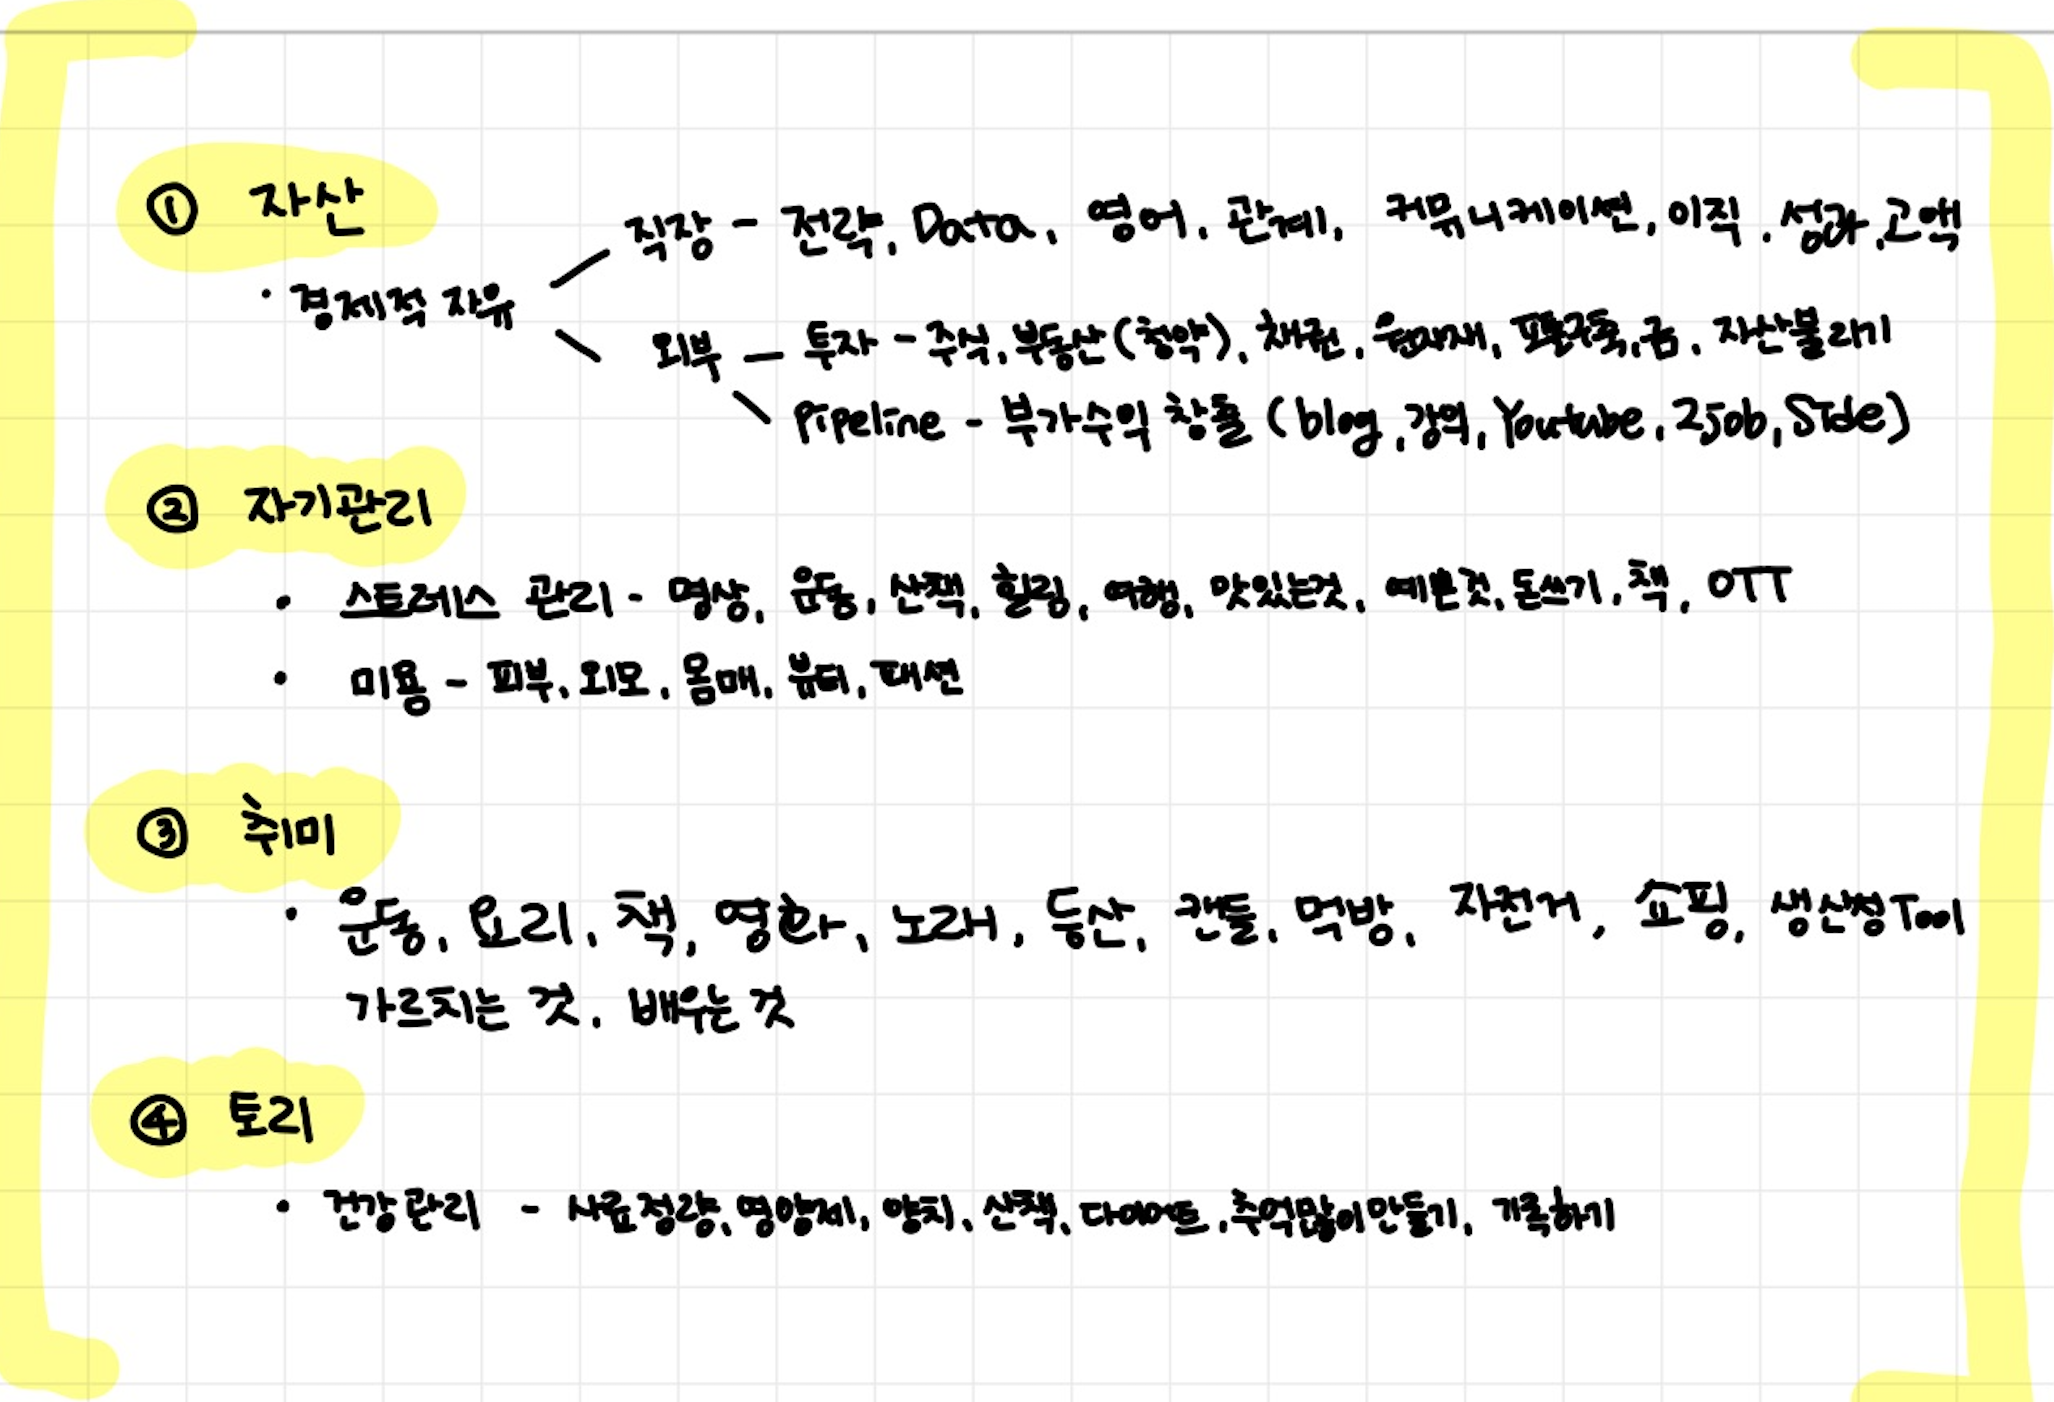 ① 자산
직장 - 전략, Data, 영어, 관계, 커뮤니케이션, 이직, 성과, 고액
· 경제적 자유
외부 - 투자 - 주식, 부동산(청약), 채권, 원자재, 포폴구축, 금, 자산불리기
Pipeline - 부가수익 창출 (blog, 강의, Youtube, 2job, Side)
② 자기관리
· 스트레스 관리 - 명상, 운동, 산책, 힐링, 여행, 맛있는것, 예쁜것, 돈쓰기, 책, OTT
· 미용 - 피부, 외모, 몸매, 뷰티, 패션
③ 취미
· 운동, 요리, 책, 영화, 노래, 등산, 캔들, 먹방, 자전거, 쇼핑, 생산성Tool
가르치는 것, 배우는 것
④ 토리
· 건강관리 - 사료정량, 영양제, 양치, 산책, 다이어트, 추억많이만들기, 기록하기